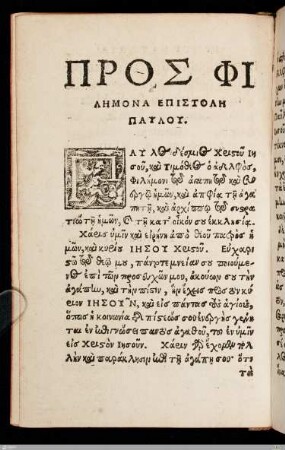 ΠΡΟΣ ΦΙ
ΛΗΜΟΝΑ ΕΠΙΣΤΟΛΗ
ΠΑΥΛΟΥ.
ΠΑΥΛΟς δέσμιος Χριστοῦ Ἰη
σοῦ, καὶ Τιμόθεος ὁ ἀδελφός,
Φιλήμονι τῷ ἀγαπητῷ καὶ συ
νεργῷ ἡμῶν, καὶ ἀπφίᾳ τῇ ἀγα
πητῇ, καὶ ἀρχίππῳ τῷ συστρα
τιώτῃ ἡμῶν, καὶ τῇ κατ' οἶκόν σου ἐκκλησίᾳ.
Χάρις ὑμῖν καὶ εἰρήνη ἀπὸ θεοῦ παρὸς ἡ
μῶν, καὶ κυρίου ΙΗΣΟΥ Χριστοῦ. Εὐχαρι
στῶ τῷ θεῷ μου, πάντοτε μνείαν σου ποιούμε
νος ἐπὶ τῶν προσευχῶν μου, ἀκούων σου τὴν
ἀγάπην, καὶ τὴν πίστιν, ἣν ἔχεις πρὸς τὸν κύ
ριον ΙΗΣΟΥΝ, καὶ εἰς πάντας τοὺς ἁγίους,
ὅπως ἡ κοινωνία τῆς πίστεώς σου ἐνεργὴς γένη
ται ἐν ἐπιγνώσει παντὸς ἀγαθοῦ, τοῦ ἐν ὑμῖν
εἰς Χριστὸν Ἰησοῦν. Χάριν γὰρ ἔχομεν πολ
λὴν καὶ παράκλησιν ἐπὶ τῇ ἀγάπῃ σου· ὅτι
τὰ